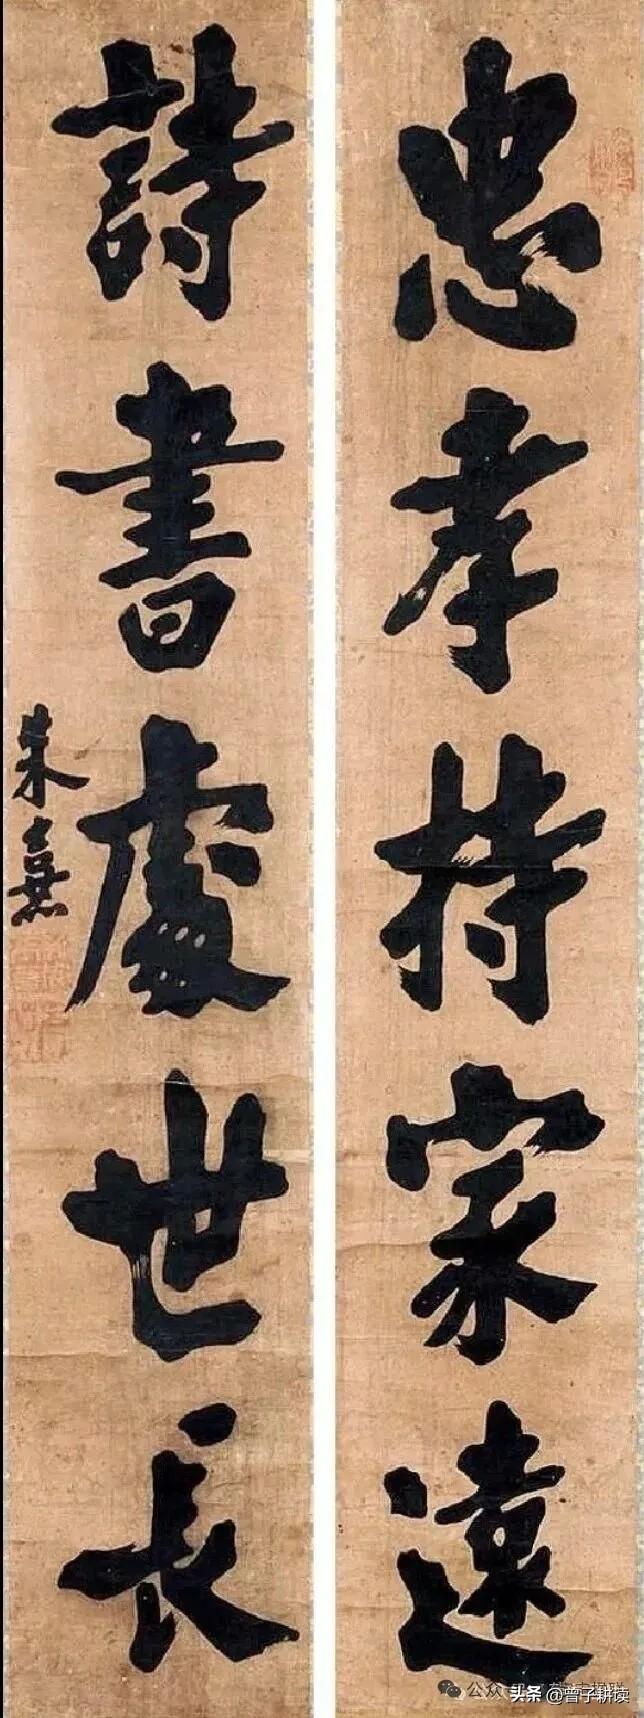 忠孝持家遠
詩書處世長
朱熹
头条 @曾子耕读